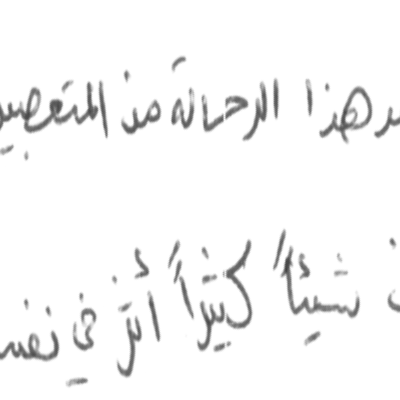 هذا الرحالة من المتعصبين
شيئاً كثيراً أثر في نفس